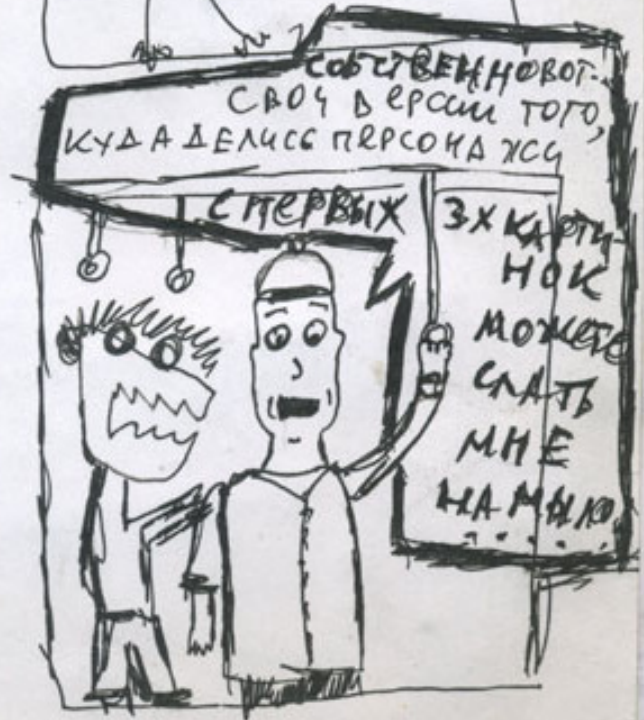 СОБСТВЕННО ВОТ.
СВОИ ВЕРСИИ ТОГО,
КУДА ДЕЛИСЬ ПЕРСОНАЖИ
С ПЕРВЫХ 3Х КАРТИ-
НОК
МОЖЕТЕ
СЛАТЬ
МНЕ
НА МЫЛО
....